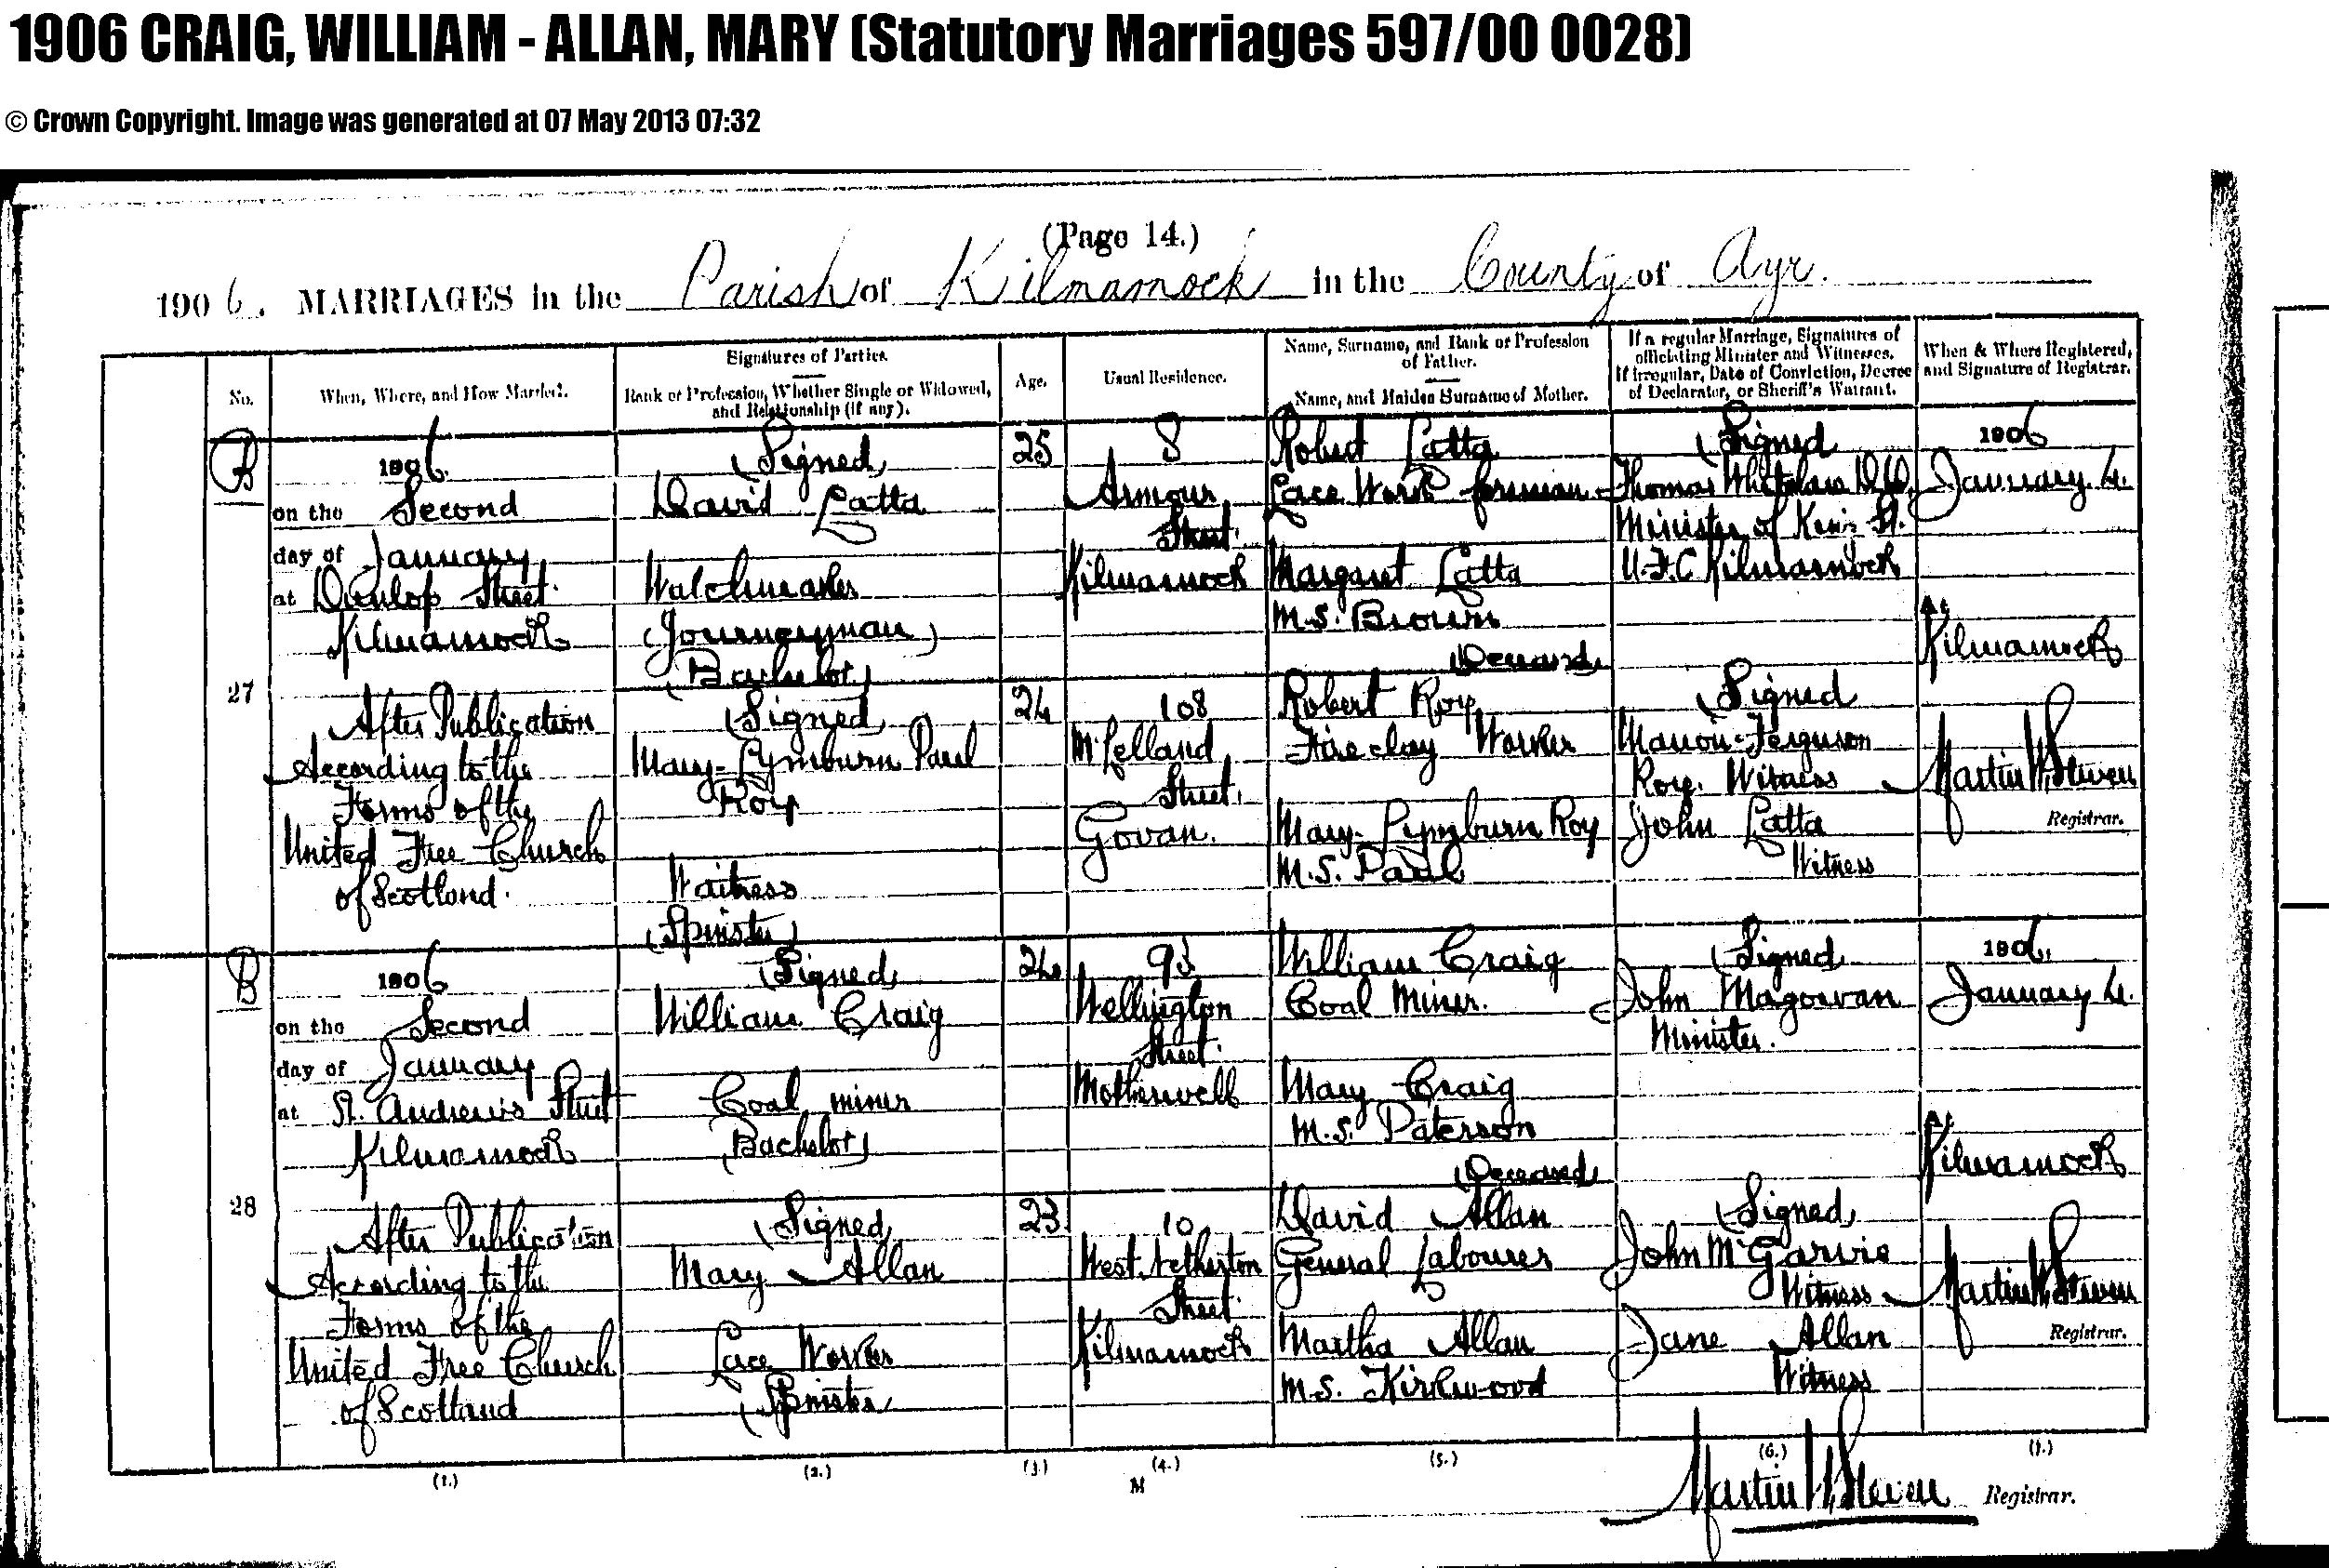 1906 CRAIG, WILLIAM - ALLAN, MARY (Statutory Marriages 597/00 0028)
© Crown Copyright. Image was generated at 07 May 2013 07:32
(Page 14.)
1906. MARRIAGES in the Parish of Kilmarnock in the County of Ayr.
No.
When, Where, and How Married.
Signatures of Parties.
Rank or Profession, Whether Single or Widowed,
and Relationship (if any).
Age.
Usual Residence.
Name, Surname, and Rank or Profession
of Father.
Name, and Maiden Surname of Mother.
If a regular Marriage, Signatures of
officiating Minister and Witnesses.
If irregular, Date of Conviction, Decree
of Declarator, or Sheriff's Warrant.
When & Where Registered,
and Signature of Registrar.
B
27
1906.
on the Second
day of January
at Dunlop Street
Kilmarnock
After Publication
According to the
Forms of the
United Free Church
of Scotland.
(Signed)
David Latta
Watchmaker
(Journeyman)
(Bachelor)
(Signed)
Mary Lymburn Paul
Roy
Waitress
(Spinster)
25
24
8
Armour
Street.
Kilmarnock
108
McLelland
Street.
Govan.
Robert Latta
Lace Work foreman
Margaret Latta
M.S. Brown
(Deceased)
Robert Roy
Fireclay Worker
Mary Lymburn Roy
M.S. Paul
(Signed)
Thomas Whitelaw D.D.
Minister of King St.
U.F.C Kilmarnock
(Signed)
Marion Ferguson
Roy. Witness
John Latta
Witness
1906
January 4.
At
Kilmarnock
Martin W. Steven
Registrar.
B
28
1906
on the Second
day of January
at St. Andrew's Street
Kilmarnock
After Publication
According to the
Forms of the
United Free Church
of Scotland
(Signed)
William Craig
Coal miner
(Bachelor)
(Signed)
Mary Allan
Lace Worker
(Spinster)
24
23
Wellington
Street.
Motherwell
10
West Netherton
Street
Kilmarnock
William Craig
Coal Miner.
Mary Craig
M.S. Paterson
(Deceased)
David Allan
General Labourer
Martha Allan
M.S. Kirkwood
(Signed)
John Magowan
Minister.
(Signed)
John McGarvie
Witness
Jane Allan
Witness
1906.
January 4.
At
Kilmarnock
Martin W. Steven
Registrar.
(1.)
(2.)
(3.)
(4.)
(5.)
(6.)
(7.)
M
Martin W. Steven Registrar.